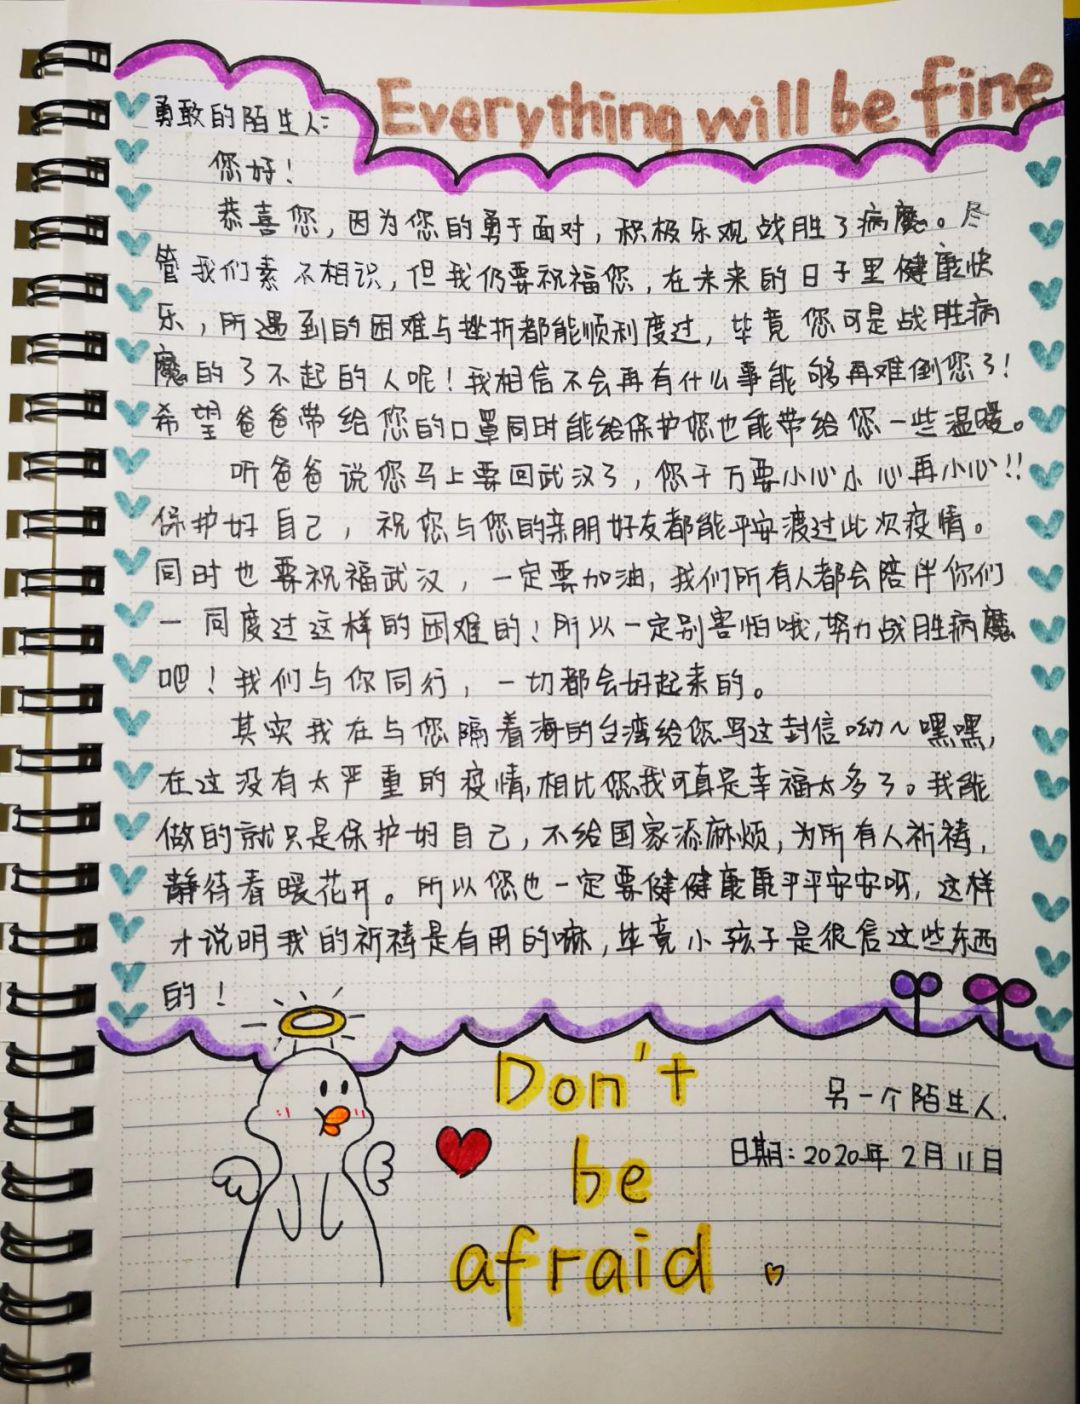 Everything will be fine
勇敢的陌生人:
您好!
恭喜您,因为您的勇于面对,积极乐观战胜了病魔。尽
管我们素不相识,但我仍要祝福您,在未来的日子里健康快
乐,所遇到的困难与挫折都能顺利度过,毕竟您可是战胜病
魔的了不起的人呢!我相信不会再有什么事能够再难倒您了!
希望爸爸带给您的口罩同时能给保护您也能带给您一些温暖。
听爸爸说您马上要回武汉了,您千万要小心小心再小心!!
保护好自己,祝您与您的亲朋好友都能平安渡过此次疫情。
同时也要祝福武汉,一定要加油,我们所有人都会陪伴你们
一同度过这样的困难的!所以一定别害怕哦,努力战胜病魔
吧!我们与你同行,一切都会好起来的。
其实我在与您隔着海的台湾给您写这封信呦~嘿嘿,
在这没有太严重的疫情,相比您我可真是幸福太多了。我能
做的就只是保护好自己,不给国家添麻烦,为所有人祈祷,
静待春暖花开。所以您也一定要健健康康平平安安呀,这样
才说明我的祈祷是有用的嘛,毕竟小孩子是很信这些东西
的!
Don't
be
afraid
另一个陌生人.
日期:2020年2月11日